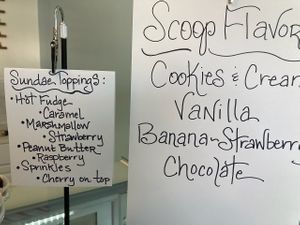 Sundae Toppings:
• Hot Fudge
• Caramel
• Marshmallow
• Strawberry
• Peanut Butter
• Raspberry
• Sprinkles
• Cherry on top
Scoop Flavor
Cookies & Cream
Vanilla
Banana-Strawberry
Chocolate